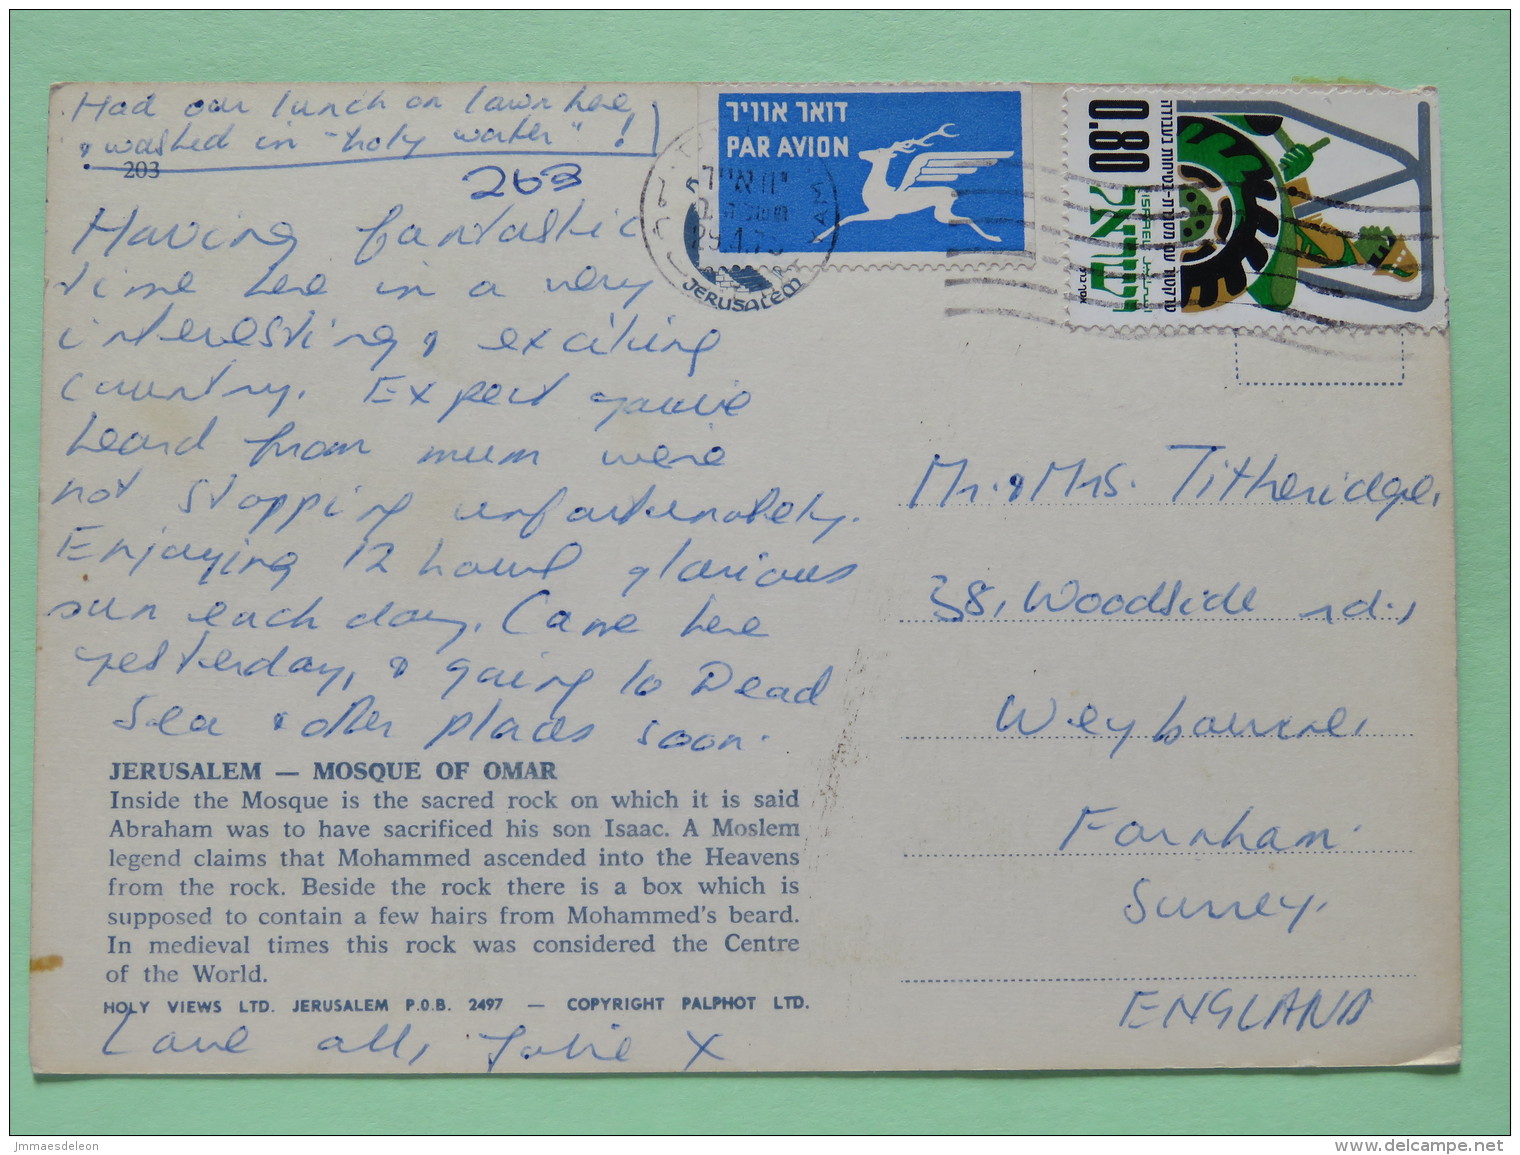 Had our lunch on lawn here,
& washed in "holy water" !
203
203
Having fantastic
time here in a very
interesting & exciting
country. Expect you've
heard from mum were
not stopping unfortunately.
Enjoying 12 hours glorious
sun each day. Came here
yesterday, & going to Dead
Sea & other places soon.
JERUSALEM — MOSQUE OF OMAR
Inside the Mosque is the sacred rock on which it is said
Abraham was to have sacrificed his son Isaac. A Moslem
legend claims that Mohammed ascended into the Heavens
from the rock. Beside the rock there is a box which is
supposed to contain a few hairs from Mohammed's beard.
In medieval times this rock was considered the Centre
of the World.
HOLY VIEWS LTD. JERUSALEM P.O.B. 2497 — COPYRIGHT PALPHOT LTD.
Love all, Jobie X
דואר אוויר
PAR AVION
JERUSALEM
0.80
ישראל
ISRAEL
Mr. & Mrs. Titheridge,
38, Woodside rd.,
Weybourne,
Farnham.
Surrey.
ENGLAND
jmmaesdeleon
www.delcampe.net